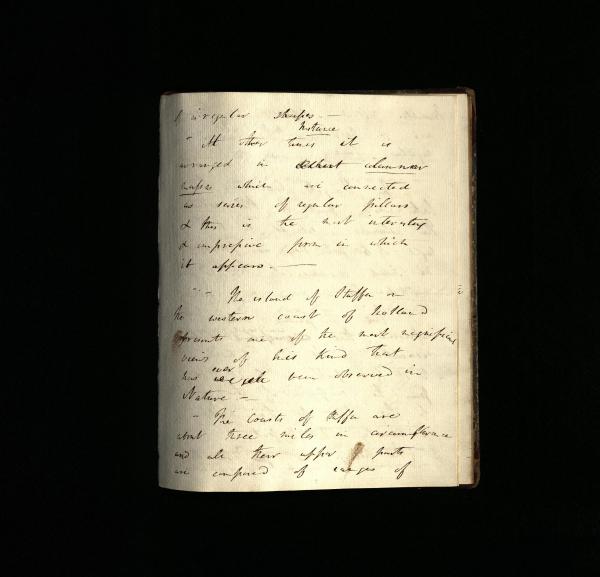 of irregular shapes —
Instance
" At other times it is
arranged in columnar
masses which are connected
as series of regular pillars
& this is the most interesting
& impressive form in which
it appears. —
" The island of Staffa on
the western coast of Scotland
presents one of the most magnificent
views of this kind that
ever
has been observed in
Nature. —
— The coasts of Staffa are
about three miles in circumference
and all their upper parts
are composed of ranges of